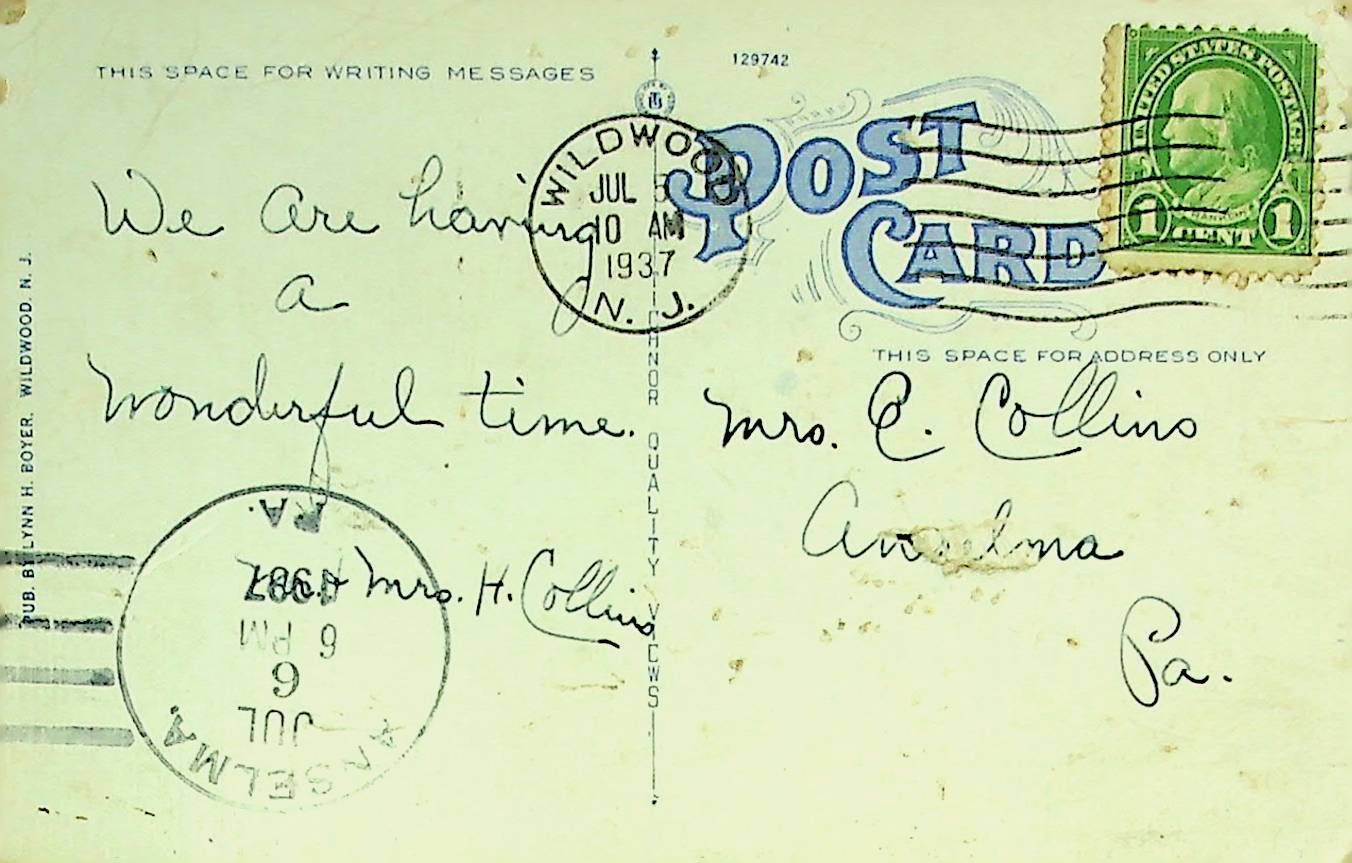 THIS SPACE FOR WRITING MESSAGES
129742
We are having
a
wonderful time.
Mr. & Mrs. H. Collins
PUB. BY LYNN H. BOYER. WILDWOOD. N. J.
WILDWOOD
JUL 5
10 AM
1937
N. J.
QUALITY VIEWS
POST
CARD
UNITED STATES POSTAGE
FRANKLIN
1 CENT 1
THIS SPACE FOR ADDRESS ONLY
Mrs. C. Collins
Anselma
Pa.
ANSELMA.
JUL
6
6 PM
1937
PA.